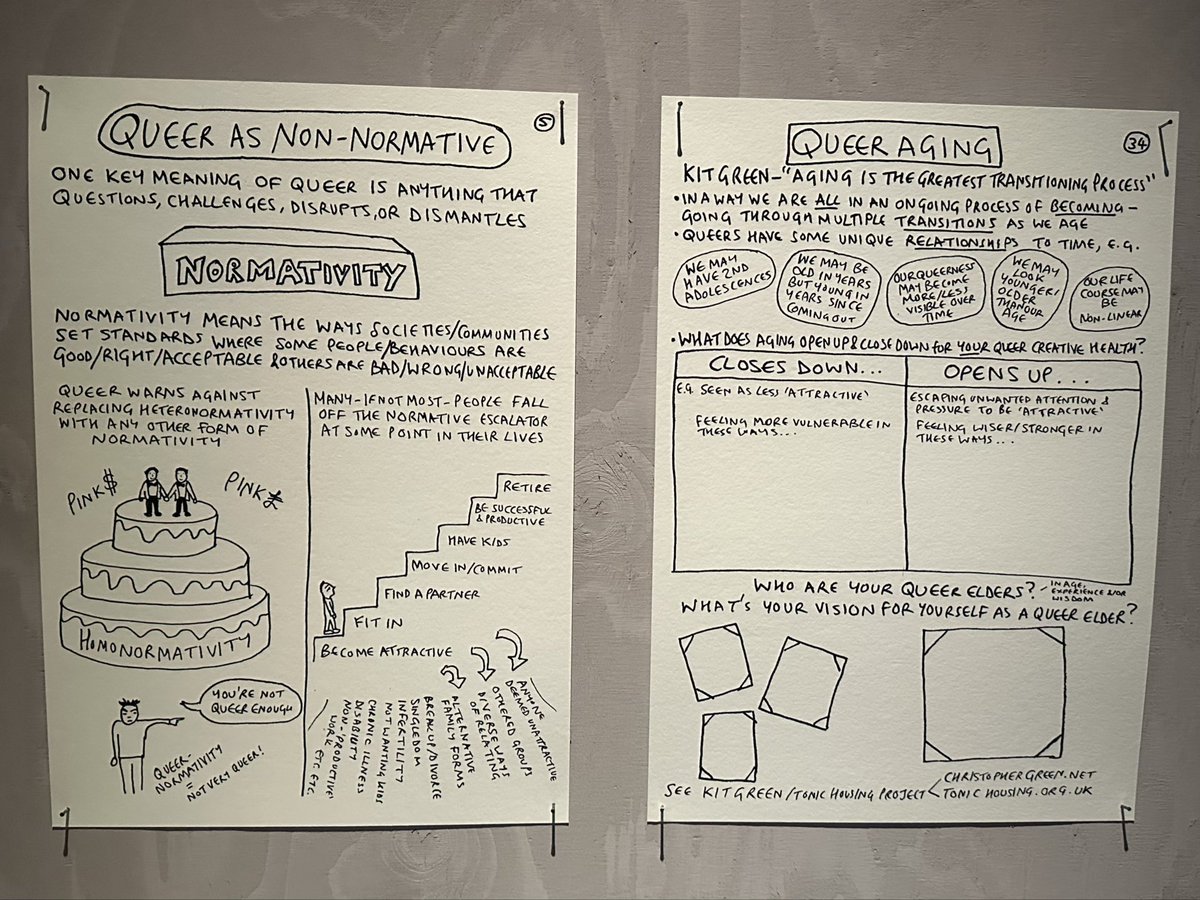 QUEER AS NON-NORMATIVE
5
ONE KEY MEANING OF QUEER IS ANYTHING THAT
QUESTIONS, CHALLENGES, DISRUPTS, OR DISMANTLES
NORMATIVITY
NORMATIVITY MEANS THE WAYS SOCIETIES/COMMUNITIES
SET STANDARDS WHERE SOME PEOPLE/BEHAVIOURS ARE
GOOD/RIGHT/ACCEPTABLE & OTHERS ARE BAD/WRONG/UNACCEPTABLE
QUEER WARNS AGAINST
REPLACING HETERONORMATIVITY
WITH ANY OTHER FORM OF
NORMATIVITY
PINK $
PINK £
HOMONORMATIVITY
YOU'RE NOT
QUEER ENOUGH
QUEER-
NORMATIVITY
=
NOT VERY QUEER!
MANY-IF NOT MOST-PEOPLE FALL
OFF THE NORMATIVE ESCALATOR
AT SOME POINT IN THEIR LIVES
RETIRE
BE SUCCESSFUL
& PRODUCTIVE
HAVE KIDS
MOVE IN/COMMIT
FIND A PARTNER
FIT IN
BECOME ATTRACTIVE
ANYONE
DEEMED UNATTRACTIVE
OTHERED GROUPS
DIVERSE WAYS
OF RELATING
ALTERNATIVE
FAMILY FORMS
BREAKUP/DIVORCE
SINGLEDOM
INFERTILITY
NOT WANTING KIDS
CHRONIC ILLNESS
DISABILITY
NON-'PRODUCTIVE'
WORK
ETC. ETC.
QUEER AGING
34
KIT GREEN-"AGING IS THE GREATEST TRANSITIONING PROCESS"
• IN A WAY WE ARE ALL IN AN ONGOING PROCESS OF BECOMING-
GOING THROUGH MULTIPLE TRANSITIONS AS WE AGE
• QUEERS HAVE SOME UNIQUE RELATIONSHIPS TO TIME, E.G.
WE MAY
HAVE 2ND
ADOLESCENCES
WE MAY BE
OLD IN YEARS
BUT YOUNG IN
YEARS SINCE
COMING OUT
OUR QUEERNESS
MAY BECOME
MORE/LESS
VISIBLE OVER
TIME
WE MAY
LOOK
YOUNGER/
OLDER
THAN OUR
AGE
OUR LIFE
COURSE MAY
BE
NON-LINEAR
• WHAT DOES AGING OPEN UP & CLOSE DOWN FOR YOUR QUEER CREATIVE HEALTH?
CLOSES DOWN...
E.G. SEEN AS LESS 'ATTRACTIVE'
FEELING MORE VULNERABLE IN
THESE WAYS...
OPENS UP...
ESCAPING UNWANTED ATTENTION &
PRESSURE TO BE 'ATTRACTIVE'
FEELING WISER/STRONGER IN
THESE WAYS...
WHO ARE YOUR QUEER ELDERS?
- IN AGE,
EXPERIENCE &/OR
WISDOM
WHAT'S YOUR VISION FOR YOURSELF AS A QUEER ELDER?
SEE KIT GREEN/TONIC HOUSING PROJECT
CHRISTOPHERGREEN.NET
TONICHOUSING.ORG.UK